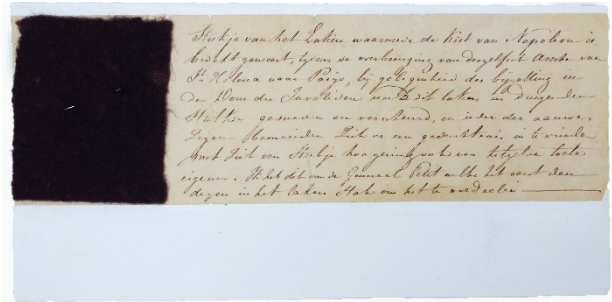 Stukje van het Laken waarmede de Kist van Napoleon is
bedekt geweest, tijdens de overbrenging van deszelfs Assche van
St Helena naar Parijs, bij gelegenheid der bijzetting in
den Dome der Invaliden werd dit laken in duizenden
Stukken gesneden en verscheurd, en ieder der aanwe-
zigen
met zich een Stukje hoe gering ook van hetzelve toete
eigenen. Ik heb dit van de Generaal Petit welke het eerst den
degen in het laken Stak om het te verdeelen